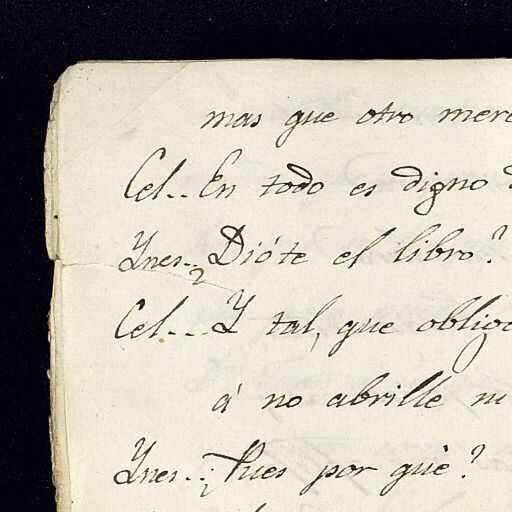 mas que otro mere
Cel.. En todo es digno d
Ynes.. ¿Dióte el libro?
Cel... Y tal, que obliga
á no abrille ni
Ynes.. ¿Pues por què?